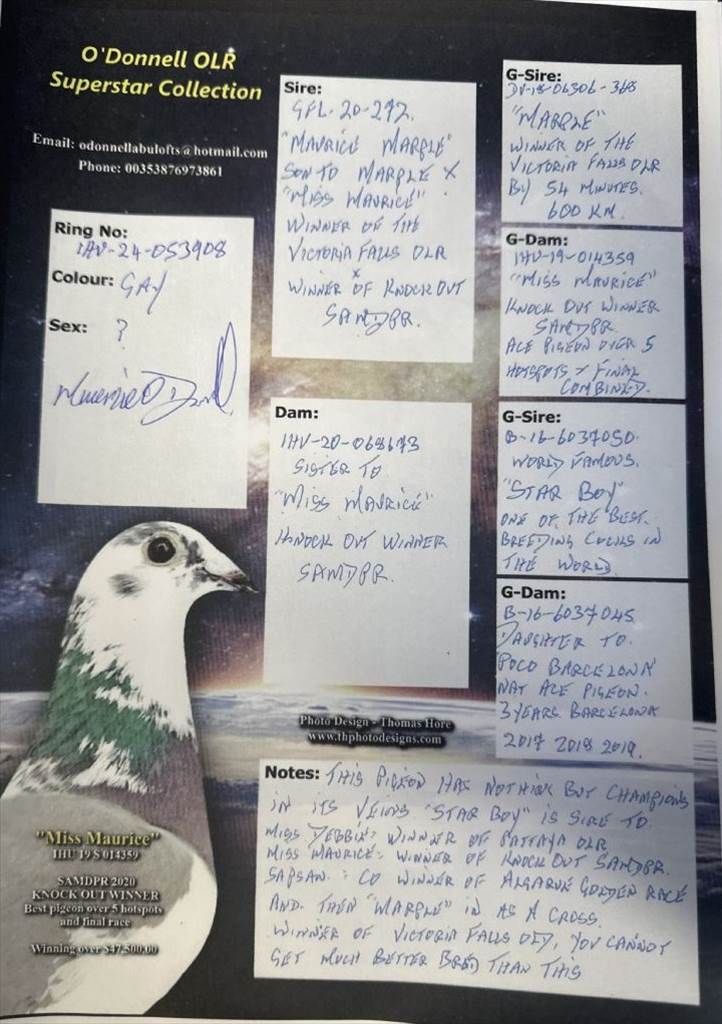 O'Donnell OLR
Superstar Collection
Email: odonnellabulofts@hotmail.com
Phone: 00353876973861
Ring No:
IHV-24-053908
Colour: GAY
Sex: ?
Sire:
GFL-20-292.
"MAURICE MARPLE"
SON TO MARPLE X
"MISS MAURICE"
WINNER OF THE
VICTORIA FALLS OLR
X
WINNER OF KNOCK OUT
SAMDPR.
Dam:
IHV-20-068673
SISTER TO
"MISS MAURICE"
KNOCK OUT WINNER
SAMDPR.
G-Sire:
DV-18-06306-368
"MARPLE"
WINNER OF THE
VICTORIA FALLS OLR
BY 54 MINUTES.
600 KM.
G-Dam:
IHV-19-014359
"MISS MAURICE"
KNOCK OUT WINNER
SAMDPR
ACE PIGEON OVER 5
HOTSPOTS & FINAL
COMBINED.
G-Sire:
B-16-6037050.
WORLD FAMOUS.
"STAR BOY"
ONE OF THE BEST.
BREEDING COCKS IN
THE WORLD
G-Dam:
B-16-6037045
DAUGHTER TO.
"POCO BARCELONA"
NAT ACE PIGEON.
3 YEARS BARCELONA
2017 2018 2019.
Notes: THIS PIGEON HAS NOTHING BUT CHAMPIONS
IN ITS VEINS "STAR BOY" IS SIRE TO
MISS DEBBIE: WINNER OF PATTAYA OLR
MISS MAURICE: WINNER OF KNOCK OUT SAMDPR.
SAPSAN: CO WINNER OF ALGARVE GOLDEN RACE
AND. THEN "MARPLE" IN AS A CROSS.
WINNER OF VICTORIA FALLS YOU CANNOT
GET MUCH BETTER BRED THAN THIS
Photo Design - Thomas Hore
www.thphotodesigns.com
"Miss Maurice"
IHU 19 S 014359
SAMDPR 2020
KNOCK OUT WINNER
Best pigeon over 5 hotspots
and final race
Winning over $47,500.00